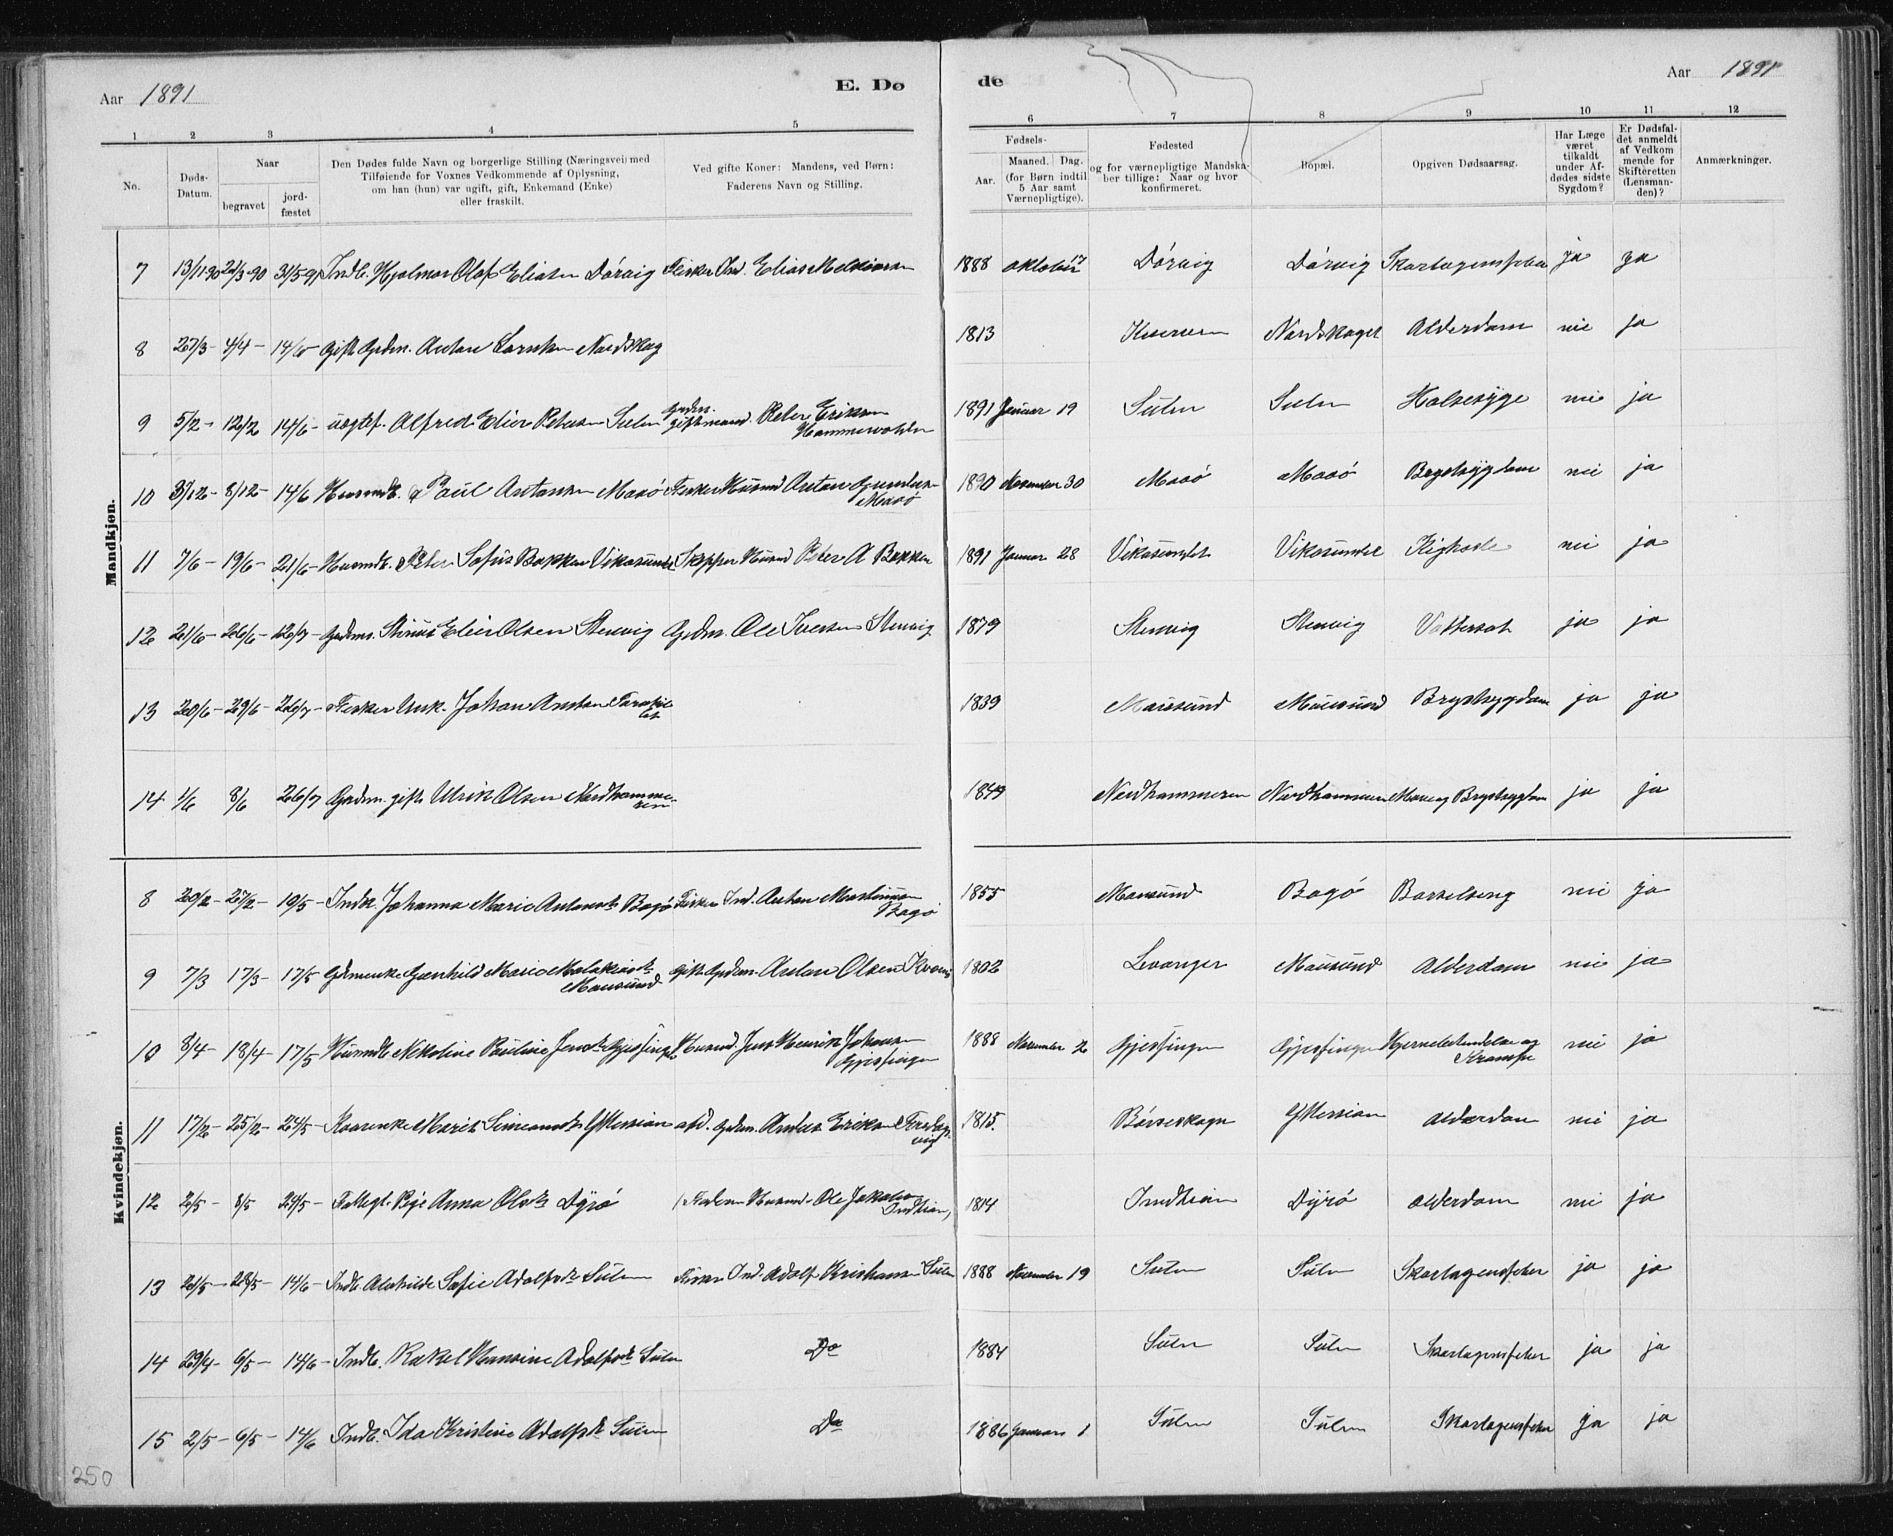 Aar 1891
E. Dø
de
Aar 1891
1 2 3 4 5 6 7 8 9 10 11 12
No.
Døds-Datum.
Naar
begravet
jord-fæstet
Den Dødes fulde Navn og borgerlige Stilling (Næringsvei) med
Tilføiende for Voxnes Vedkommende af Oplysning,
om han (hun) var ugift, gift, Enkemand (Enke)
eller fraskilt.
Ved gifte Koner: Mandens, ved Børn:
Faderens Navn og Stilling.
Fødsels-
Aar.
Maaned. Dag.
(for Børn indtil
5 Aar samt
Værnepligtige).
Fødested
og for værnepligtige Mandska-
ber tillige: Naar og hvor
konfirmeret.
Bopæl.
Opgiven Dødsaarsag.
Har Læge
været
tilkaldt
under Af-
dødes sidste
Sygdom?
Er Dødsfal-
det anmeldt
af Vedkom
mende for
Skifteretten
(Lensman-
den)?
Anmærkninger.
Mandkjøn.
7 Indb. Hjalmar Olaf Eliasen Dørvig Fisker Ind. Elias 1888 oktober Dørvig Dørvig Skarlagensfeber ja ja
8 27/3 - 4/4 - 14/6 Gift Gdm. Anton Nordskag 1813 Nordskaget Alderdom nei ja
9 5/2 - 12/2 14/6 - Alfred Elier Petersen Sulen Peter Eriksen 1891 Januar 19 Sulen Sulen Halsesyge nei ja
10 3/12 - 8/12 - 14/6 Paul Antonsen Masø Fisker Husmd Anton Masø 1890 30 Masø Masø Brystsygdom nei ja
11 7/6 - 19/6 - 21/6 - Husmdb. Peter Sofus Bakken Vikasundet Skipper Husmd Peter A Bakken 1891 Januar 28 Vikasundet Vikasundet Kighoste nei ja
12 21/6 - 26/6 - 12/7 - Elier Olsen Stenvig Gdm. Ole Iversen Stenvig 1879 Stenvig Stenvig Vattersot ja ja
13 20/6 - 29/6 - 26/7 - Fisker Unk. Johan 1839 Mausund Mausund Brystsygdom ja ja
14 1/6 8/6 26/7 Gdm. gift Ulrik Olsen Nordhammeren 1849 Nordhammeren Nordhammeren Brystsygdom ja ja
Kvindekjøn.
8 20/2 - 27/2 - 10/5 - Johanna Marie Antonsdt. Bogø Fisker Ind. Anton Martinusen Bogø 1855 Mausund Bogø Barselseng nei ja
9 7/3 17/3 - 17/5 Gunhild Marie Mausund Gift Gdm. Anton Olsen 1802 Levanger Mausund Alderdom nei ja
10 8/4 - 18/4 - 17/5 Husmdb Nikoline Pauline Jensdt. Gjessingen Husmd. Jens Henrik Johansen Gjessingen 1888 November 2 Gjessingen Gjessingen Hjernebetændelse og Krampe nei ja
11 17/2 - 25/2 - 24/5 - Marit Simeonsdt. Ytterian afd. Gdm. Anders Eriksen 1815 Børseskogn Ytterian Alderdom nei ja
12 2/5 - 8/5 24/5 - Pige Anna Olsdt. Dyrø (Faderen Husmd. Ole Jakobsen Indhian) 1814 Indhian Dyrø Alderdom nei ja
13 21/5 - 28/5 - 14/6 - Indb. Sofie Adolfsdt. Sulen Fisker Ind. Adolf Kristiansen Sulen 1888 November 19 Sulen Sulen Skarlagensfeber ja ja
14 29/4 - 6/5 - 14/6 - Indb. Rakel Hansine Adolfsdt. Sulen Do 1884 Sulen Sulen Skarlagensfeber ja ja
15 2/5 - 6/5 - 14/6 Indb. Ida Kristine Adolfsdt. Sulen Do 1886 Januar 1 Sulen Sulen Skarlagensfeber ja ja
250